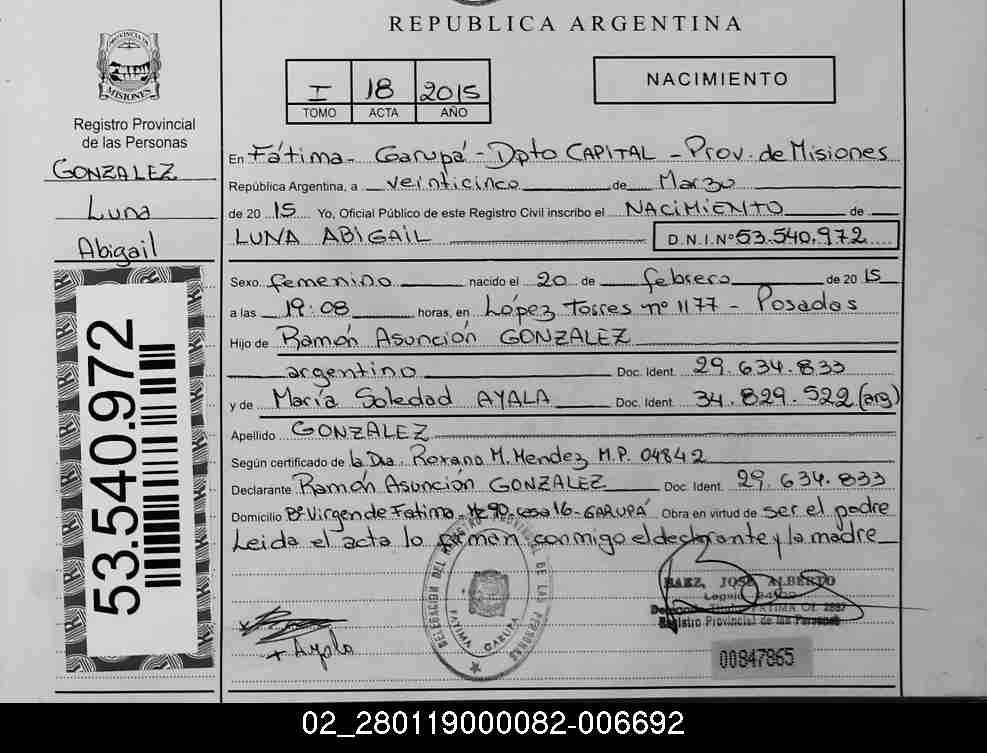 REPUBLICA ARGENTINA
PROVINCIA DE
MISIONES
Registro Provincial
de las Personas
GONZALEZ
Luna
Abigail
53.540.972
I 18 2015
TOMO ACTA AÑO
NACIMIENTO
En Fátima - Garupá - Dpto CAPITAL - Prov. de Misiones
República Argentina, a veinticinco de Marzo
de 2015 Yo, Oficial Público de este Registro Civil inscribo el NACIMIENTO de
LUNA ABIGAIL D.N.I.Nº 53.540.972
Sexo femenino nacido el 20 de febrero de 2015
a las 19:08 horas, en López Torres nº 1177 - Posadas
Hijo de Ramón Asunción GONZALEZ
argentino Doc. Ident. 29.634.833
y de María Soledad AYALA Doc. Ident. 34.829.522 (arg)
Apellido GONZALEZ
Según certificado de la Dra. Roxana M. Mendez M.P. 04842
Declarante Ramón Asunción GONZALEZ Doc. Ident. 29.634.833
Domicilio Bº Virgen de Fatima - Mz 90 - casa 16 - GARUPÁ Obra en virtud de ser el padre
Leida el acta lo firman conmigo el declarante y la madre
DELEGACION DEL REGISTRO PROVINCIAL DE LAS PERSONAS
FATIMA GARUPA
+ Ayala
BAEZ, JOSE ALBERTO
Legajo
FATIMA Of. 2887
Registro Provincial de las Personas
00847865
02_280119000082-006692